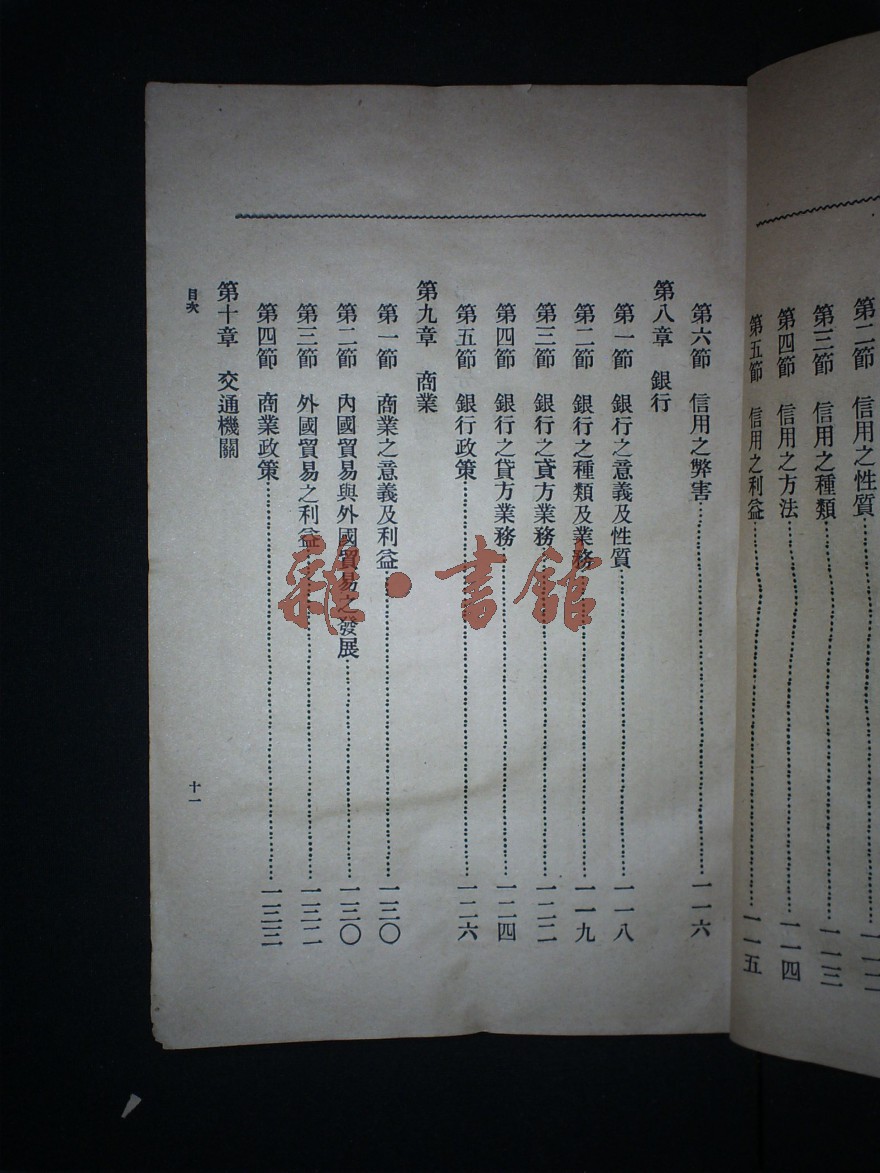 第二節 信用之性質
第三節 信用之種類…………一一三
第四節 信用之方法…………一一四
第五節 信用之利益…………一一五
第六節 信用之弊害…………一一六
第八章 銀行
第一節 銀行之意義及性質…………一一八
第二節 銀行之種類及業務…………一一九
第三節 銀行之貣方業務…………一二二
第四節 銀行之貸方業務…………一二四
第五節 銀行政策…………一二六
第九章 商業
第一節 商業之意義及利益…………一三〇
第二節 內國貿易與外國貿易之發展…………一三〇
第三節 外國貿易之利益…………一三二
第四節 商業政策…………一三三
第十章 交通機關
目次
十一
雜·書館